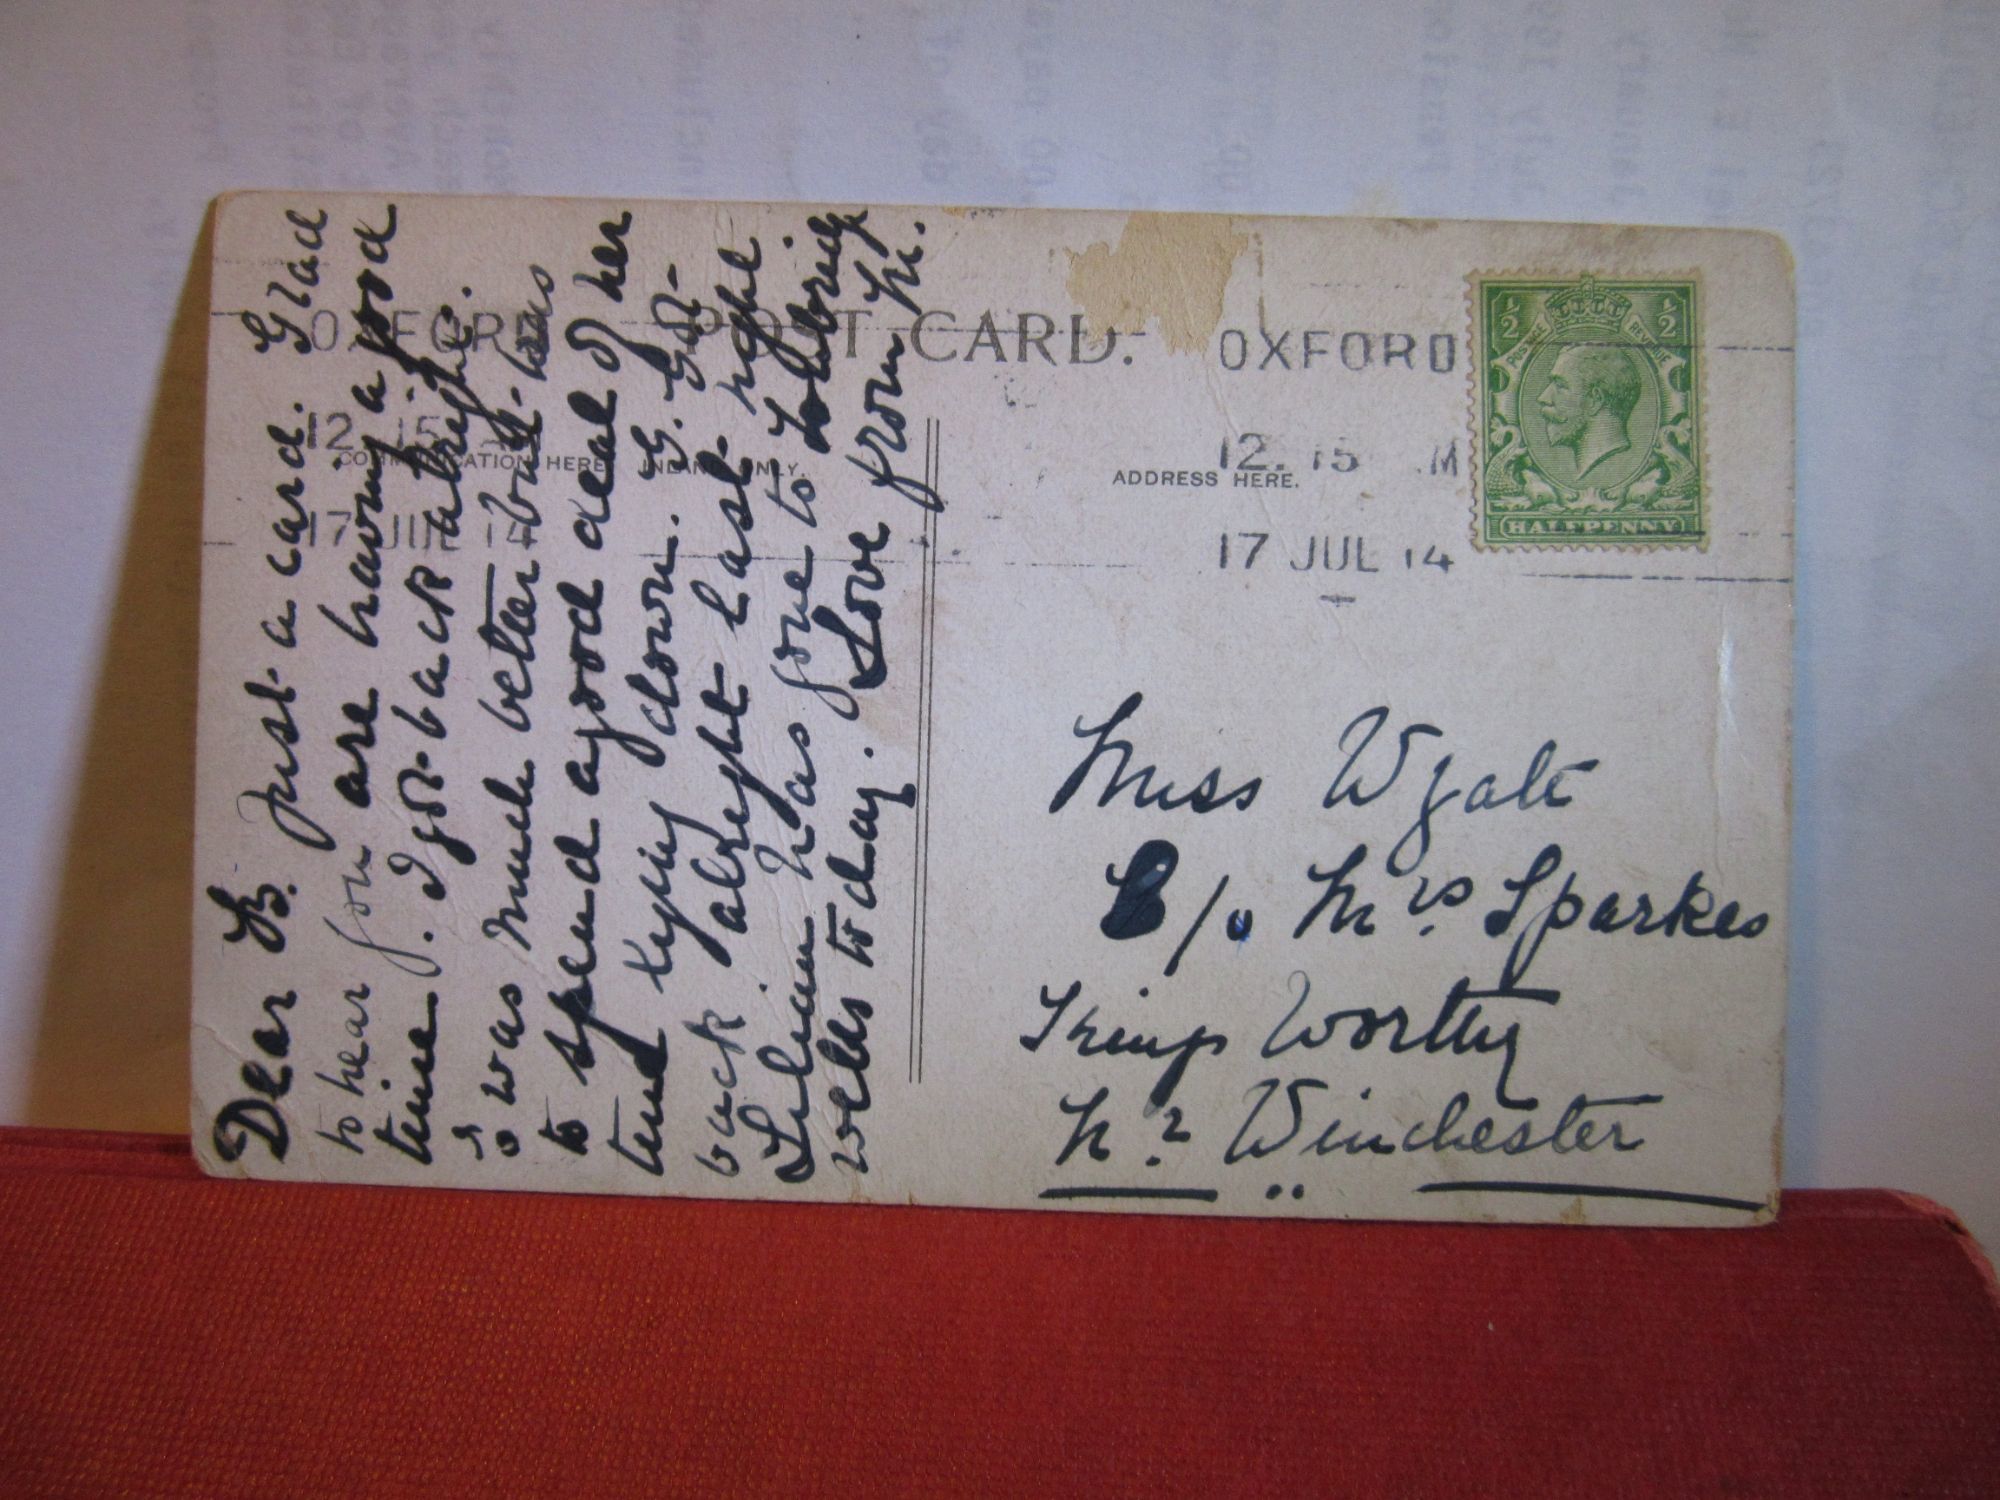 POST CARD.
COMMUNICATION HERE INLAND ONLY.
ADDRESS HERE.
OXFORD
12. 15 M
17 JUL 14
OXFORD
12 15
17 JUL 14
½ ½
POSTAGE REVENUE
HALFPENNY
Dear B. Just a card. Glad
to hear you are having a good
time. I got back alright.
was much better but has
to spend a good deal of her
time lying down. G. Got
back alright last night
Lilian has gone to Tonbridge
wells to day. Love from M.
Miss Wyatt
C/o Mrs Sparkes
Kings Worthy
Nr Winchester